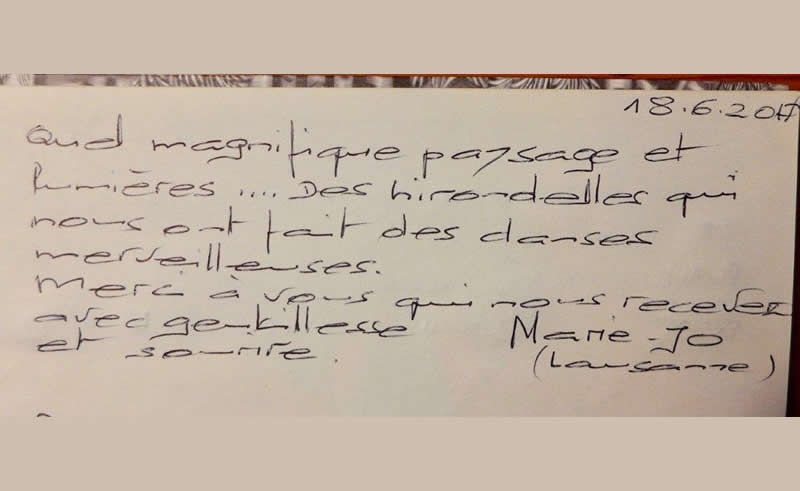 18.6.2017
Quel magnifique paysage et
lumières .... Des hirondelles qui
nous ont fait des danses
merveilleuses.
Merci à vous qui nous recevez
avec gentillesse
et sourire.
Marie-Jo
(Lausanne)